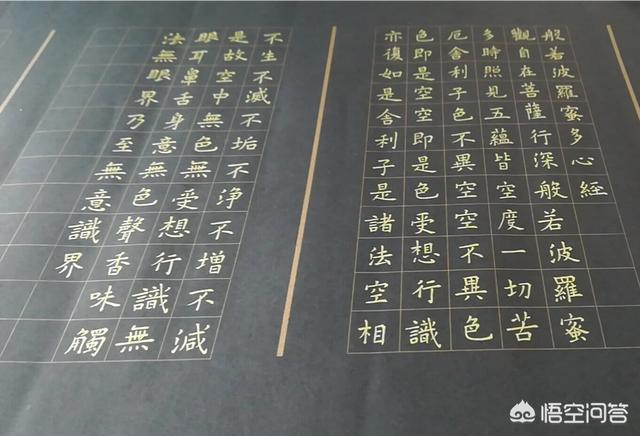 般若波羅蜜多心經
觀自在菩薩行深般若波羅蜜
多時照見五蘊皆空度一切苦
厄舍利子色不異空空不異色
色即是空空即是色受想行識
亦復如是舍利子是諸法空相
不生不滅不垢不淨不增不減
是故空中無色無受想行識無
眼耳鼻舌身意無色聲香味觸
法無眼界乃至無意識界
悟空问答